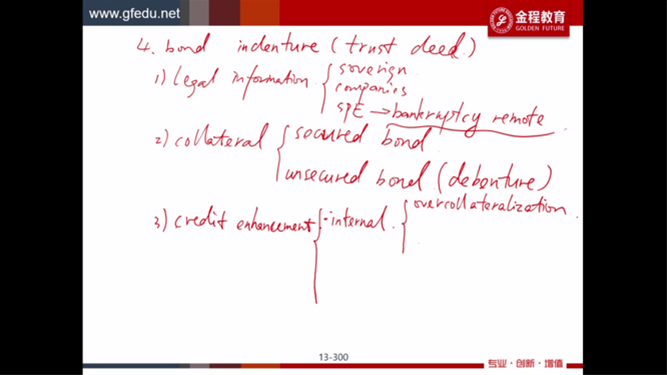 www.gfedu.net
金程教育
GOLDEN FUTURE
4. bond indenture (trust deed)
1) legal information { soverign
companies
SPE → bankruptcy remote
2) collateral { secured bond
unsecured bond (debenture)
3) credit enhancement { - internal { overcollateralization
13-300
专业·创新·增值